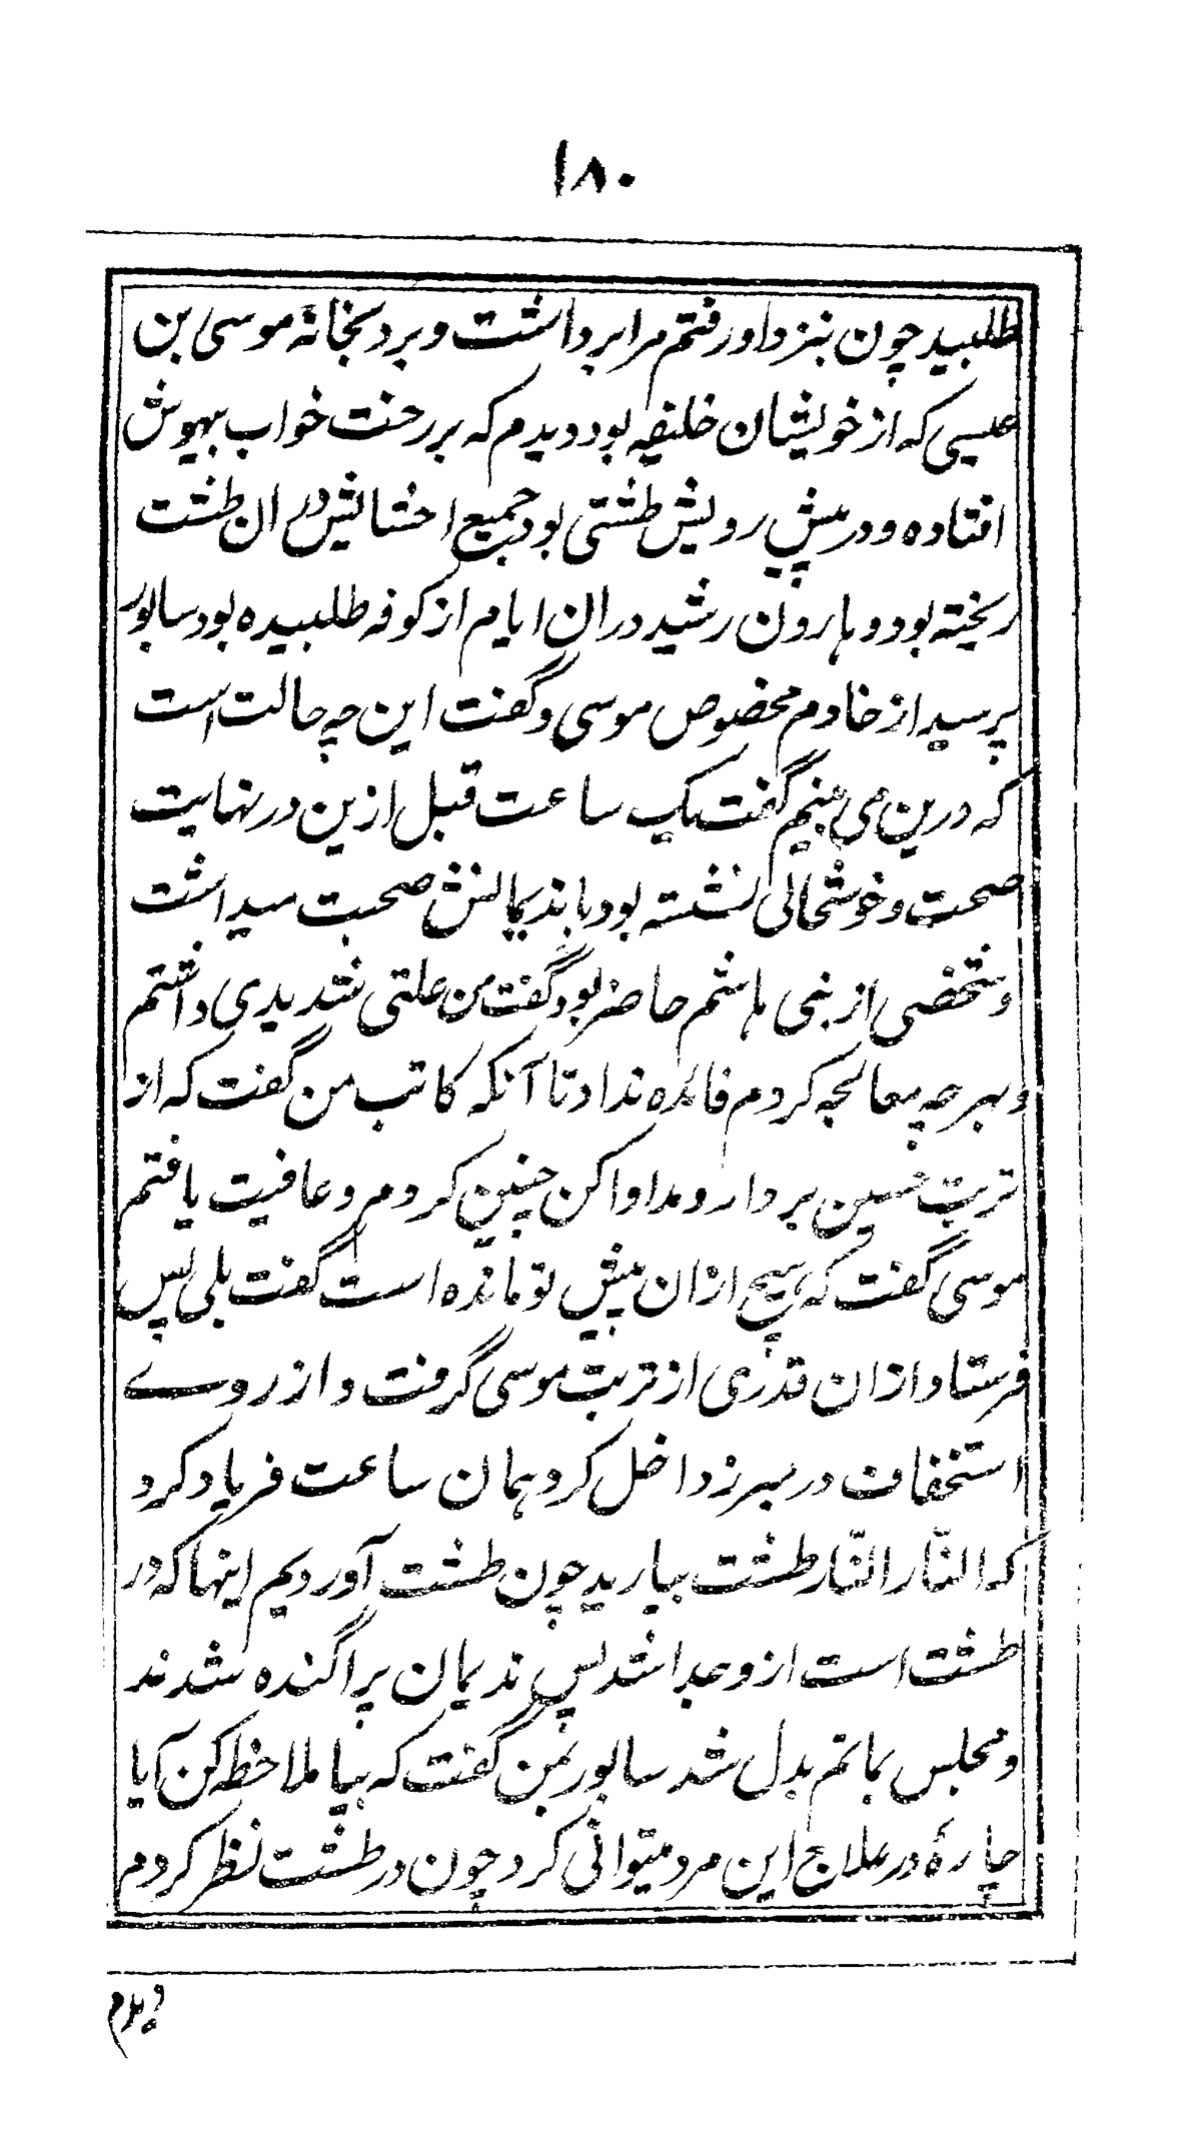 ۱۸۰
طلبید چون بنزد او رفتم مرا برداشت و برد بخانهٔ موسی بن
عیسی که از خویشان خلیفه بود دیدم که بر رخت خواب بیهوش
افتاده و در پیش رویش طشتی بود جمیع احشایش در ان طشت
ریخته بود و هارون رشید در ان ایام از کوفه طلبیده بود سابور
پرسید از خادم مخصوص موسی و گفت این چه حالت است
که درین می بینم گفت یک ساعت قبل ازین در نهایت
صحت و خوشحالی نشسته بود با ندیمانش صحبت میداشت
و شخصی از بنی هاشم حاضر بود گفت من علتی شدیدی داشتم
و بهر چه معالجه کردم فائده نداد تا آنکه کاتب من گفت که از
تربت حسین بردار و مداوا کن چنین کردم و عافیت یافتم
موسی گفت که هیچ از ان پیش تو مانده است گفت بلی پس
فرستاد از ان قدری از تربت موسی گرفت و از روے
استخفاف در مبرز داخل کرد همان ساعت فریاد کرد
که النّار النّار طشت بیارید چون طشت آوردیم اینها که در
طشت است ازو جدا شد پس ندیمان پراگنده شدند
و مجلس بماتم بدل شد سابور بمن گفت که بیا ملاحظه کن آیا
چارهٔ در علاج این مرد میتوانی کرد چون در طشت نظر کردم
دیدم